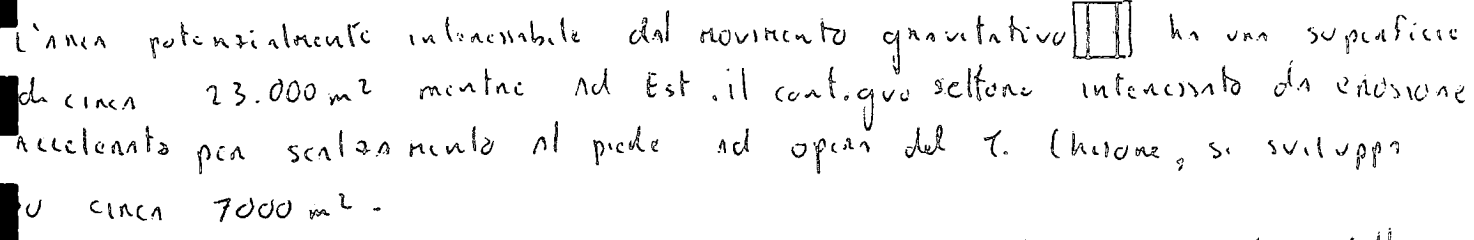 L'area potenzialmente interessabile dal movimento gravitativo ha una superficie
di circa 23.000 m² mentre ad Est, il contiguo settore interessato da erosione
accelerata per scalzamento al piede ad opera del T. Chisone, si sviluppa
su circa 7000 m².